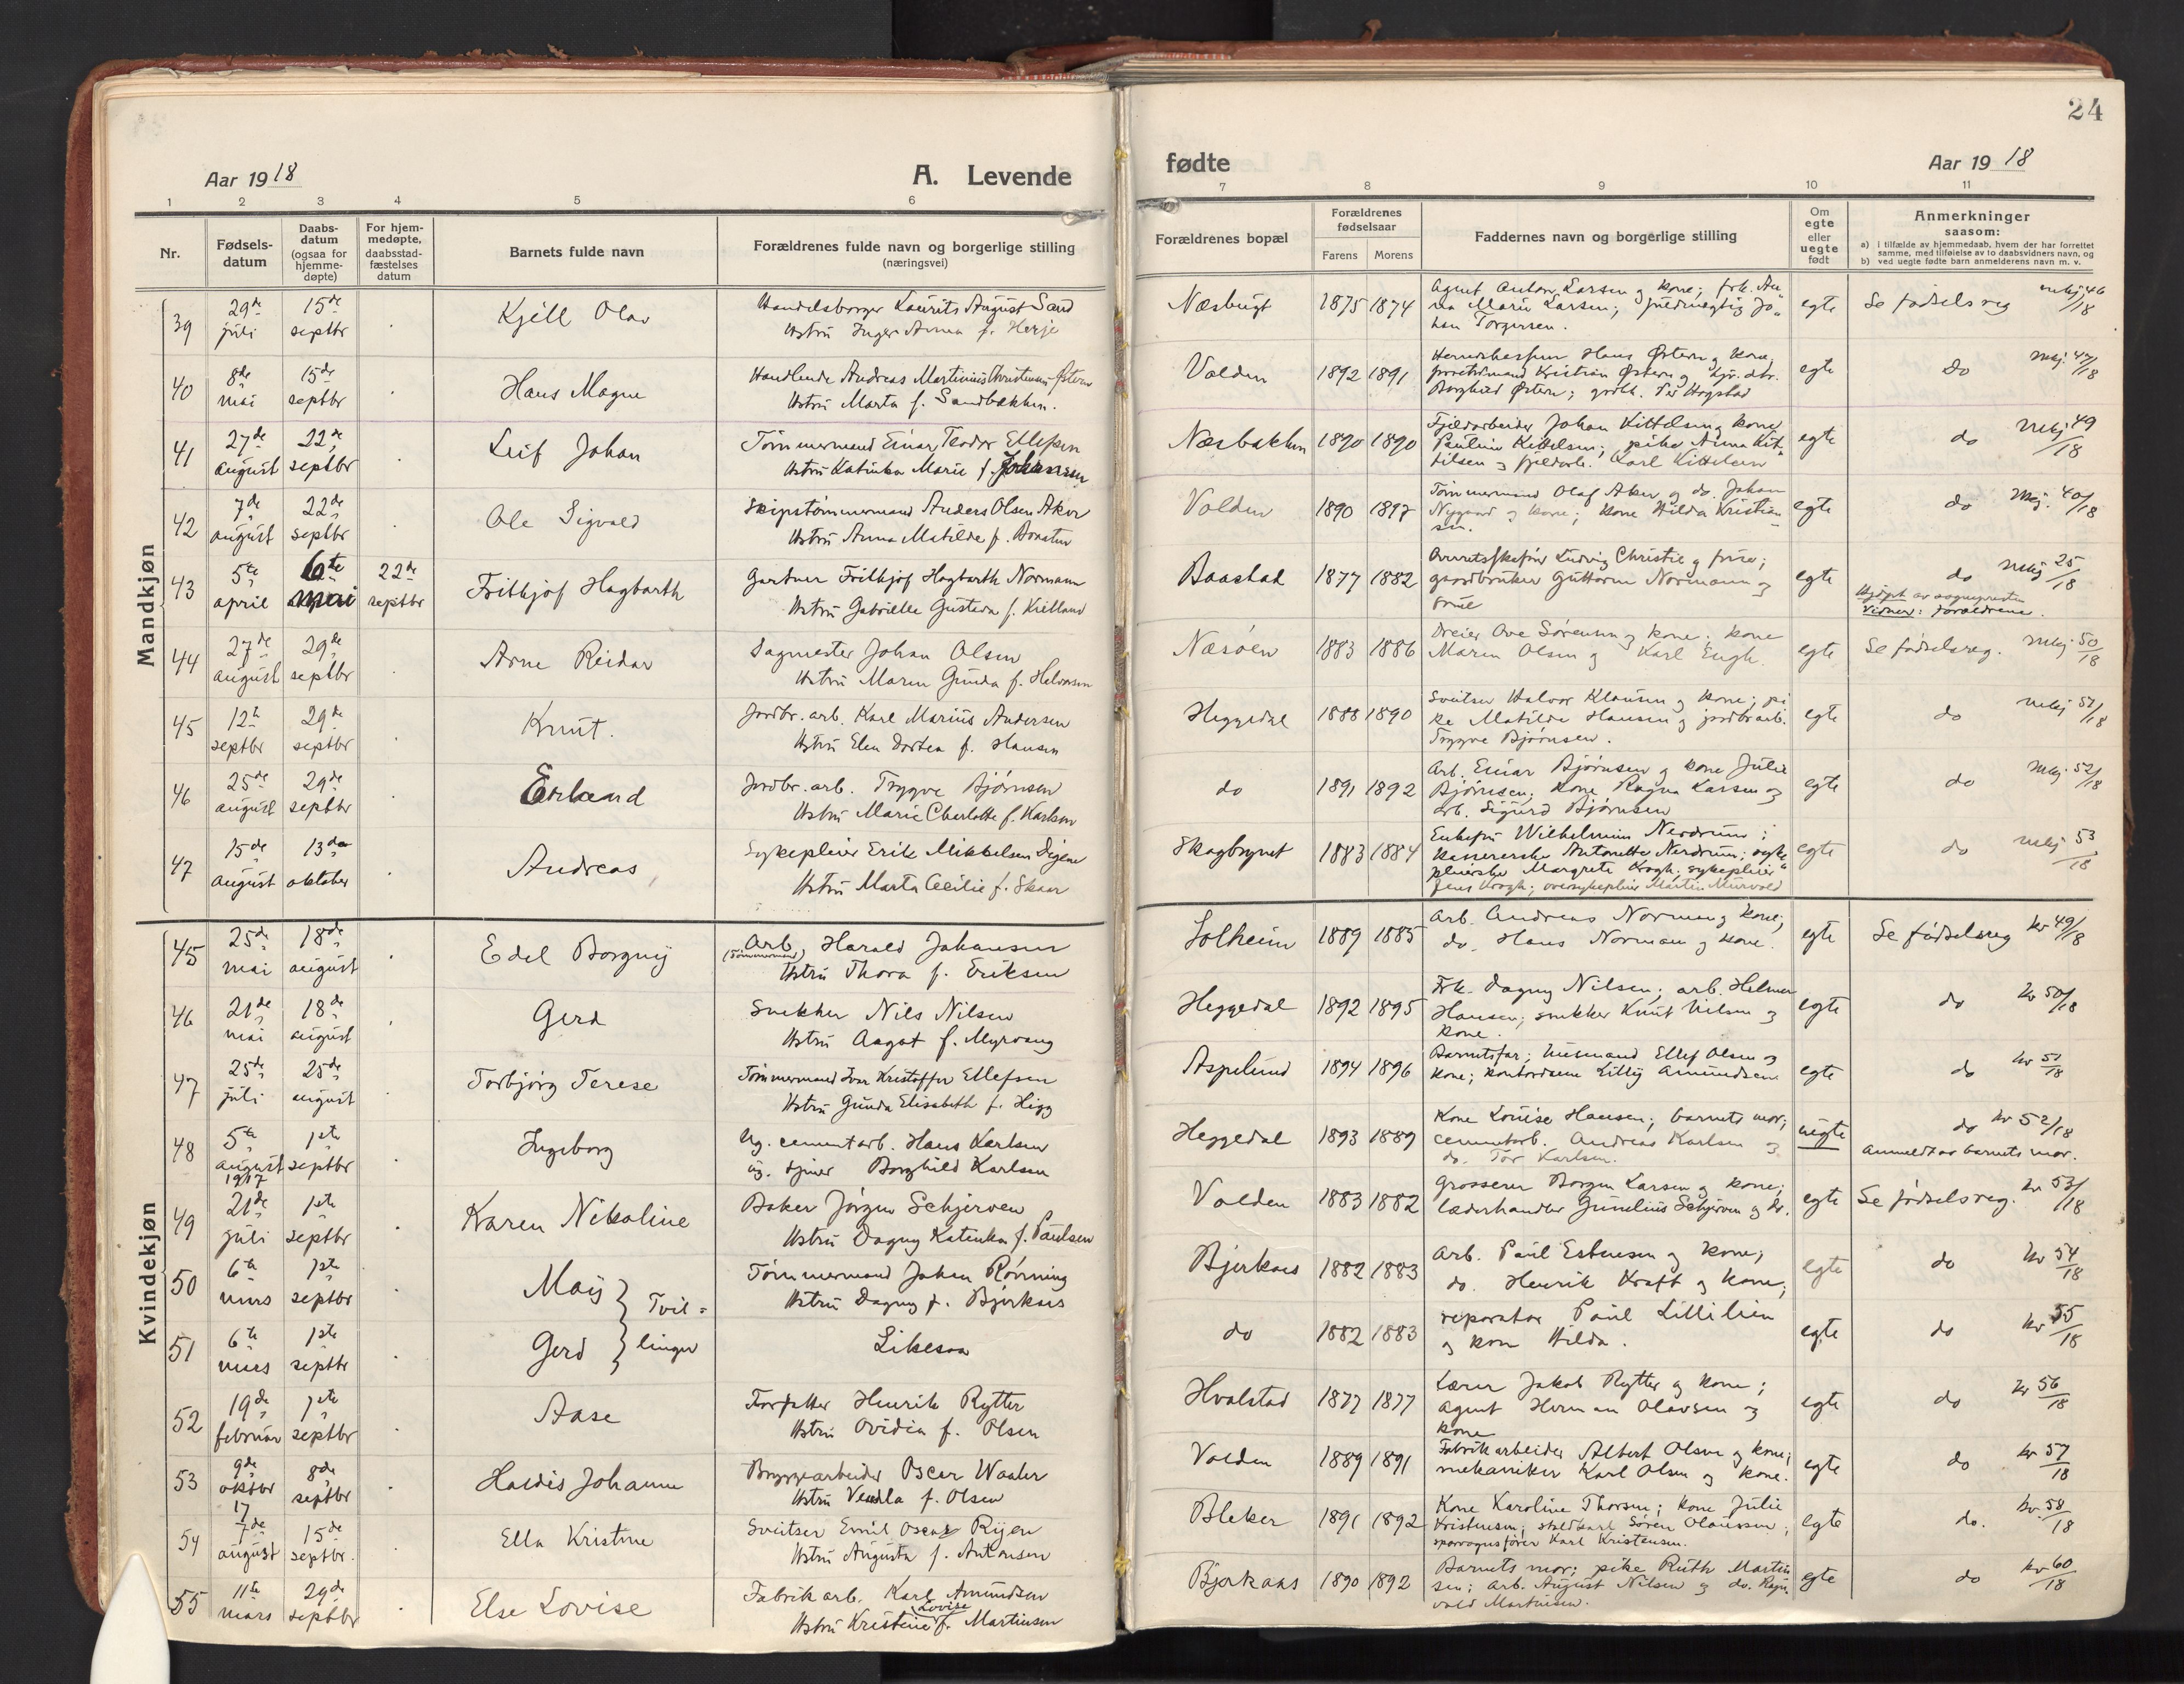 24
Aar 1918
A. Levende
fødte
Aar 1918
1 2 3 4 5 6 7 8 9 10 11
Nr.
Fødsels-
datum
Daabs-
datum
(ogsaa for
hjemme-
døpte)
For hjem-
medøpte,
daabsstad-
fæstelses
datum
Barnets fulde navn
Forældrenes fulde navn og borgerlige stilling
(næringsvei)
Forældrenes bopæl
Forældrenes
fødselsaar
Farens Morens
Faddernes navn og borgerlige stilling
Om
egte
eller
uegte
født
Anmerkninger
saasom:
a) i tilfælde av hjemmedaab, hvem der har forrettet
samme, med tilføielse av to daabsvidners navn, og
b) ved uegte fødte barn anmelderens navn m. v.
Mandkjøn
39 29de juli 15de septbr Kjell Olav
Handelsborger Laurits August Sand
Hstru Inger Anna f. Herje
Næsbugt 1875 1874
Agent Anton Larsen og kone; frk. An-
na Marie Larsen; fuldmegtig Jo-
han Torgersen.
egte Se fødselsreg mkj 46/18
40 8de mai 15de septbr Hans Magne
Handlende Andreas Martinius Christensen Østern
Hstru Marta f. Sandbakken.
Volden 1892 1891
Hans Østern og kone,
Kristian Østern og
Borghild Østern; Per Hogstad
egte do mkj. 47/18
41 27de august 22de septbr Leif Johan
Tømmermand Einar Teodor Ellefsen
Hstru Katinka Marie f. Johansen
Næsbakken 1890 1890
Fjeldarbeider Johan Kittelsen og kone
Pauline Kittelsen; pike Anna Kit-
tilsen og fjeldarb. Karl Kittelsen
egte do mkj 49/18
42 7de august 22de septbr Ole Sigvald
Skipstømmermand Anders Olsen Aker
Hstru Anna Matilde f.
Volden 1890 1897
Tømmermand Olaf Aker og do. Johan
Nygaard og kone; kone Hilda Kristian-
sen.
egte do mkj. 40/18
43 5te april 6te mai 22de septbr Frithjof Hagbarth
Gartner Frithjof Hagbarth Normann
Hstru Gabrielle Gustava f. Kielland
Baastad 1877 1882
Ludvig Christie og frue;
gaardbruker Guttorm Normann og
frue
egte do mkj 25/18
Hjdøpt av sognepresten
Vidner: forældrene.
44 27de august 29de septbr Arne Reidar
Sagmester Johan Olsen
Hstru Maren Gunda f. Helvorsen
Næsøen 1883 1886
Dreier Ove Sørensen og kone; kone
Maren Olsen og Karl Engh.
egte Se fødselsreg. mkj 50/18
45 12te septbr 29de septbr Knut.
Jordbr. arb. Karl Marius Andersen
Hstru Elen Dortea f. Hansen
Heggedal 1888 1890
Sveitser Halvor Klausen og kone; pi-
ke Matilde Hansen og jordbr.arb.
Trygve Bjørnsen.
egte do mkj 51/18
46 25de august 29de septbr Erland
Jordbr. arb. Trygve Bjørnsen
Hstru Marie Charlotte f. Karlsen
do 1891 1892
Arb. Einar Bjørnsen og kone Julie
Bjørnsen; kone Ragna Larsen og
arb. Sigurd Bjørnsen
egte do mkj 52/18
47 15de august 13de oktober Andreas
Sykepleier Erik Mikkelsen Digene
Hstru Marta Cecilie f. Skaar
Skogbrynet 1883 1884
Enkefru Wilhelmine Nerdrum;
kassererske Antonette Nerdrum; syke-
pleierske Margrete Krogh; sykepleier
Jens Krogh; oversykepleier Martin Murvold
egte do mkj 53/18
Kvindekjøn
45 25de mai 18de august Edel Borgny
Arb. (Tømmermand) Harald Johansen
Hstru Thora f. Eriksen
Solheim 1889 1885
Arb. Andreas Norman og kone;
do. Hans Norman og kone.
egte Se fødselsreg kv 49/18
46 21de mai 18de august Gerd
Snekker Nils Nilsen
Hstru Aagot f. Myrvang
Heggedal 1892 1895
Frk. Dagny Nilsen; arb. Helmer
Hansen; snekker Knut Nilsen og
kone.
egte do kv 50/18
47 25de juli 25de august Torbjørg Terese
Tømmermand Ivar Kristoffer Ellefsen
Hstru Gunda Elisabeth f. Higg
Aspelund 1894 1896
Barnets far; husmand Ellef Olsen og
kone; kontordame Lilly Amundsen
egte do kv 51/18
48 5te august 1917 1ste septbr Ingeborg
Ug. cementarb. Hans Karlsen
ug. tjener Borghild Karlsen
Heggedal 1893 1889
Kone Louise Hansen; barnets mor;
cementarb. Andreas Karlsen og
do. Tor Karlsen.
uegte do kv 52/18
Anmeldt av barnets mor.
49 21de juli 1ste septbr Karen Nikoline
Baker Jørgen Schjerven
Hstru Dagny Katinka f. Paulsen
Volden 1883 1882
Grosserer Borgen Larsen og kone;
læderhandler Gunelius Schjerven og do.
egte Se fødselsreg. kv 53/18
50 6te mars 1ste septbr Maij } Tvil-
Tømmermand Johan Rønning
Hstru Dagny f. Bjerkaas
Bjerkaas 1882 1883
Arb. Paul Esbensen og kone;
do. Henrik Kraft og kone;
egte do kv 54/18
51 6te mars 1ste septbr Gerd } linger
Likesaa
do 1882 1883
reparatør Paul Lillilien
og kone Hilda.
egte do kv 55/18
52 19de februar 1ste septbr Aase
Forfatter Henrik Rytter
Hstru Ovidia f. Olsen
Hvalstad 1877 1877
Lærer Jakob Rytter og kone;
Agent Herman Olavsen og
kone
egte do kv 56/18
53 9de oktbr 17 8de septbr Haldis Johanne
Bryggearbeider Oscar Waaler
Hstru Vendla f. Olsen
Volden 1889 1891
Fabrikarbeider Albert Olsen og kone;
mekaniker Karl Olsen og kone.
egte do kv 57/18
54 7de august 15de septbr. Ella Kristine
Sveitser Emil Oscar Rijen
Hstru Augusta f. Antonsen
Bleker 1891 1892
Kone Karoline Thorsen; kone Julie
Kristensen; staldkarl Søren Olaussen;
sporvognsfører Karl Kristensen.
egte do. kv. 58/18
55 11te mars 29de septbr Else Lovise
Fabrik arb. Karl Amundsen
Hstru Kristine Lovise f. Martinsen
Bjerkaas 1890 1892
Barnets mor; pike Ruth Martin-
sen; arb. August Nilsen og do. Ragn-
vald Martinsen.
egte do kv 60/18